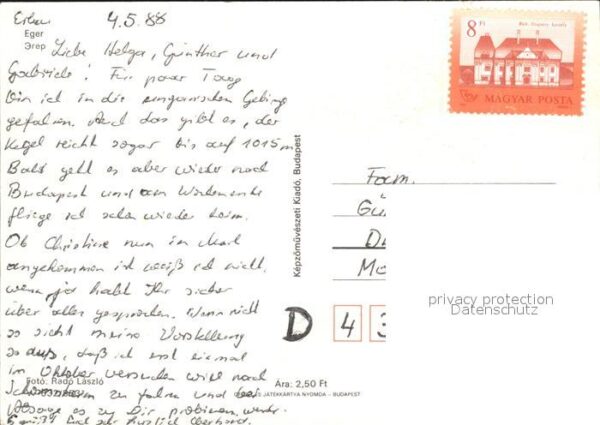 Erlau 4.5.88
Eger
Эгер
Liebe Helga, Günther und
Gabriele! Für paar Tage
bin ich in die ungarischen Gebirge
gefahren. Auch das gibt es, der
Kegel reicht sogar bis auf 1015m
Bald geht es aber wieder nach
Budapest und am Wochenende
fliege ich schon wieder heim.
Ob Christine nun im Mai
angekommen ist weiß ich nicht,
wenn ja habt Ihr sicher
über alles gesprochen. Wenn nicht
so sieht meine Vorstellung
so aus, daß ich erst einmal
im Oktober versuchen will nach
zu fahren und bei
es zu Dir probieren werde.
Es grüßt Euch sehr herzlich Eberhard.
Fotó: Radó László
Ára: 2,50 Ft
JÁTÉKKÁRTYA NYOMDA – BUDAPEST
Képzőművészeti Kiadó, Budapest
8 Ft
MAGYAR POSTA
Fam.
Gü
D
Mo
D 4 3
privacy protection
Datenschutz